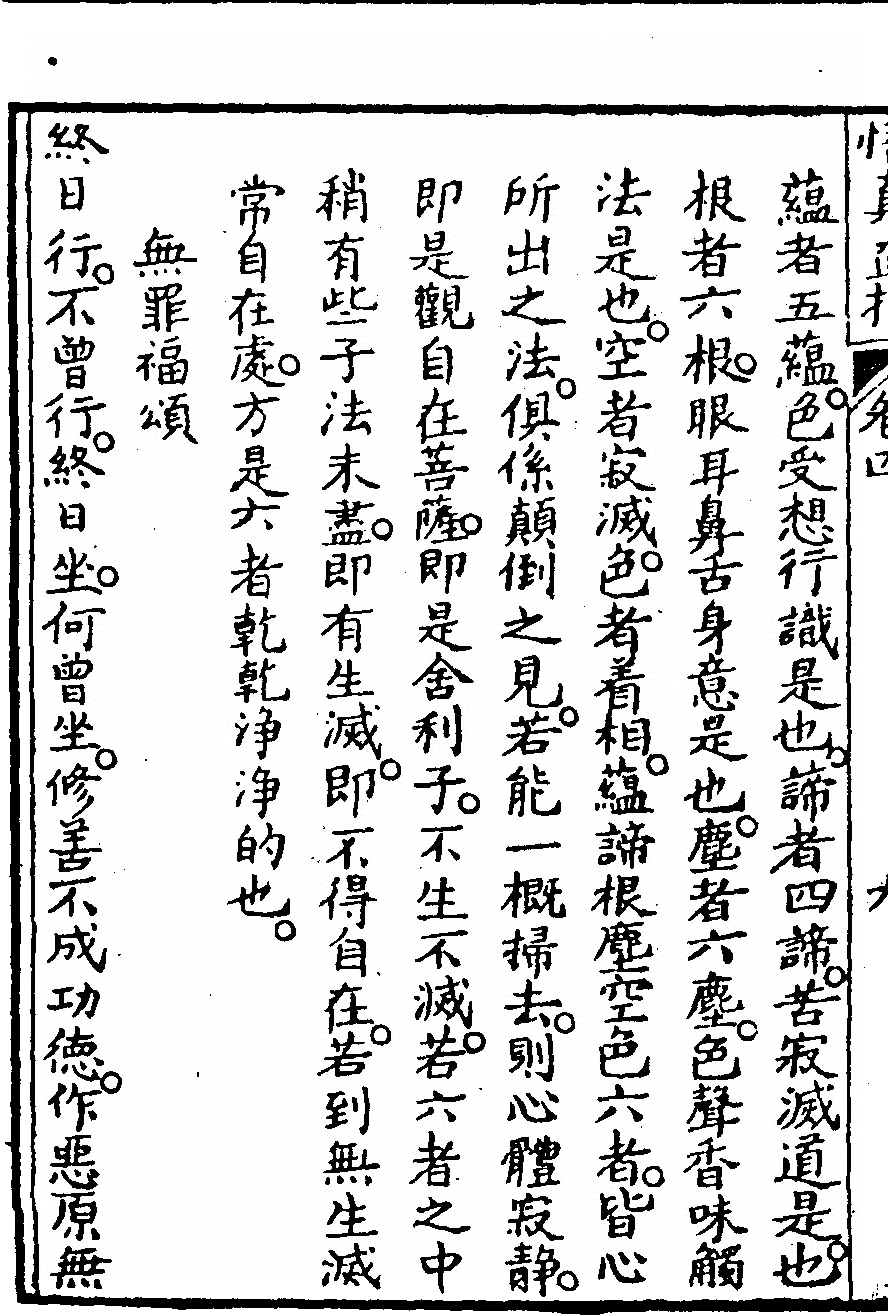 蘊者五蘊。色受想行識是也。諦者四諦。苦寂滅道是也。
根者六根。眼耳鼻舌身意是也。塵者六塵。色聲香味觸
法是也。空者寂滅。色者着相。蘊諦根塵空色六者。皆心
所出之法。俱係顛倒之見。若能一概掃去。則心體寂静。
即是觀自在菩薩。即是舍利子。不生不滅。若六者之中
稍有些子法未盡。即有生滅。即不得自在。若到無生滅
常自在處。方是六者乾乾浄浄的也。
無罪福頌
終日行。不曾行。終日坐。何曾坐。修善不成功德。作惡原無